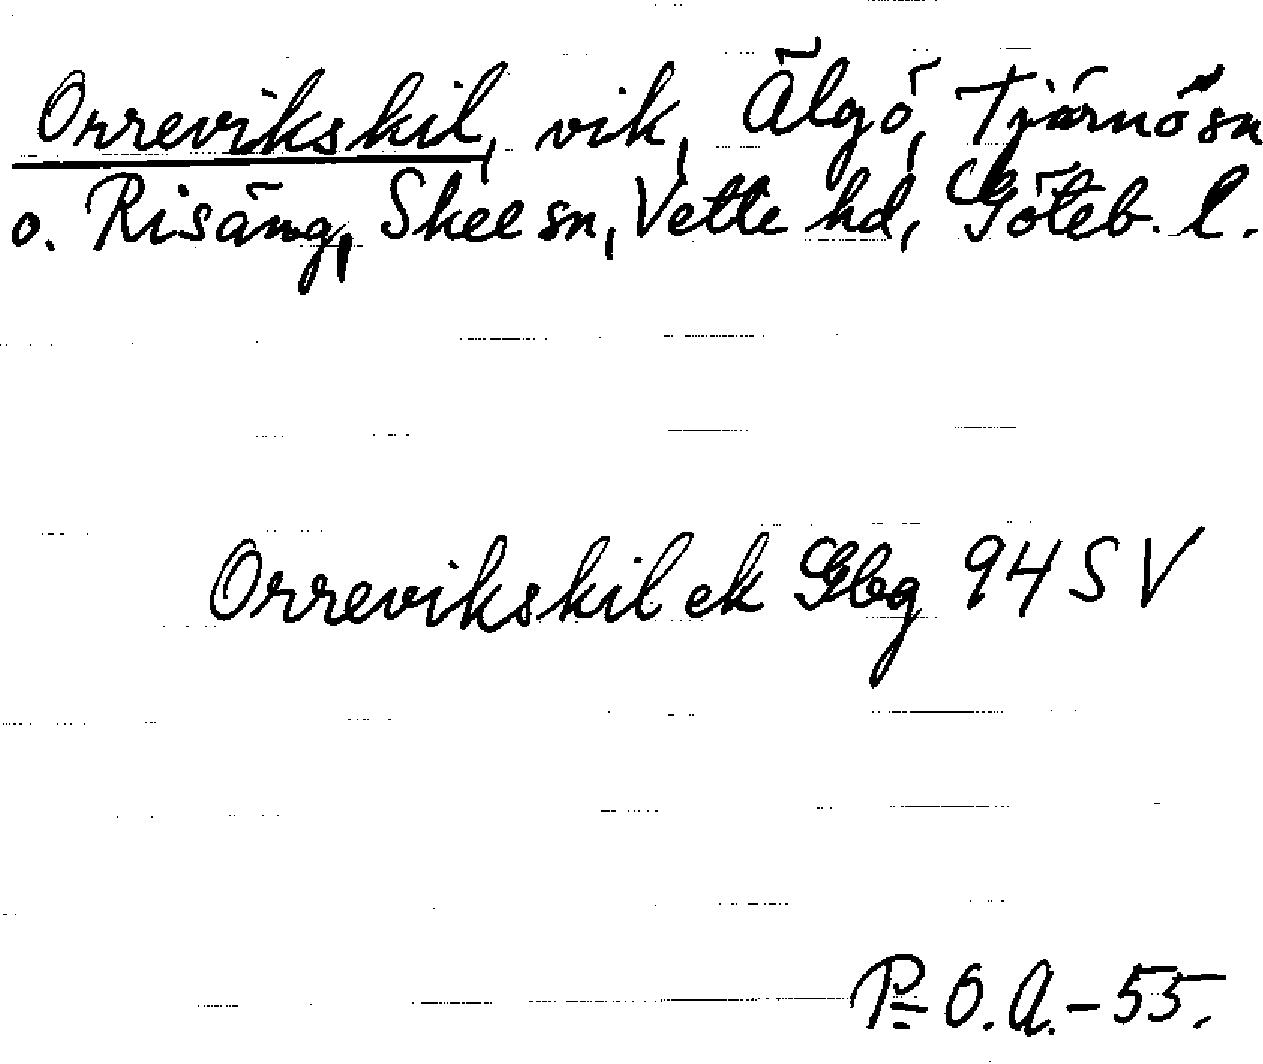 Orrevikskil, vik, Älgö, Tjärnö sn
o. Risäng, Skee sn, Vette hd, Göteb. l.
Orrevikskil ek Gbg 94 SV
P=O.A.-55.